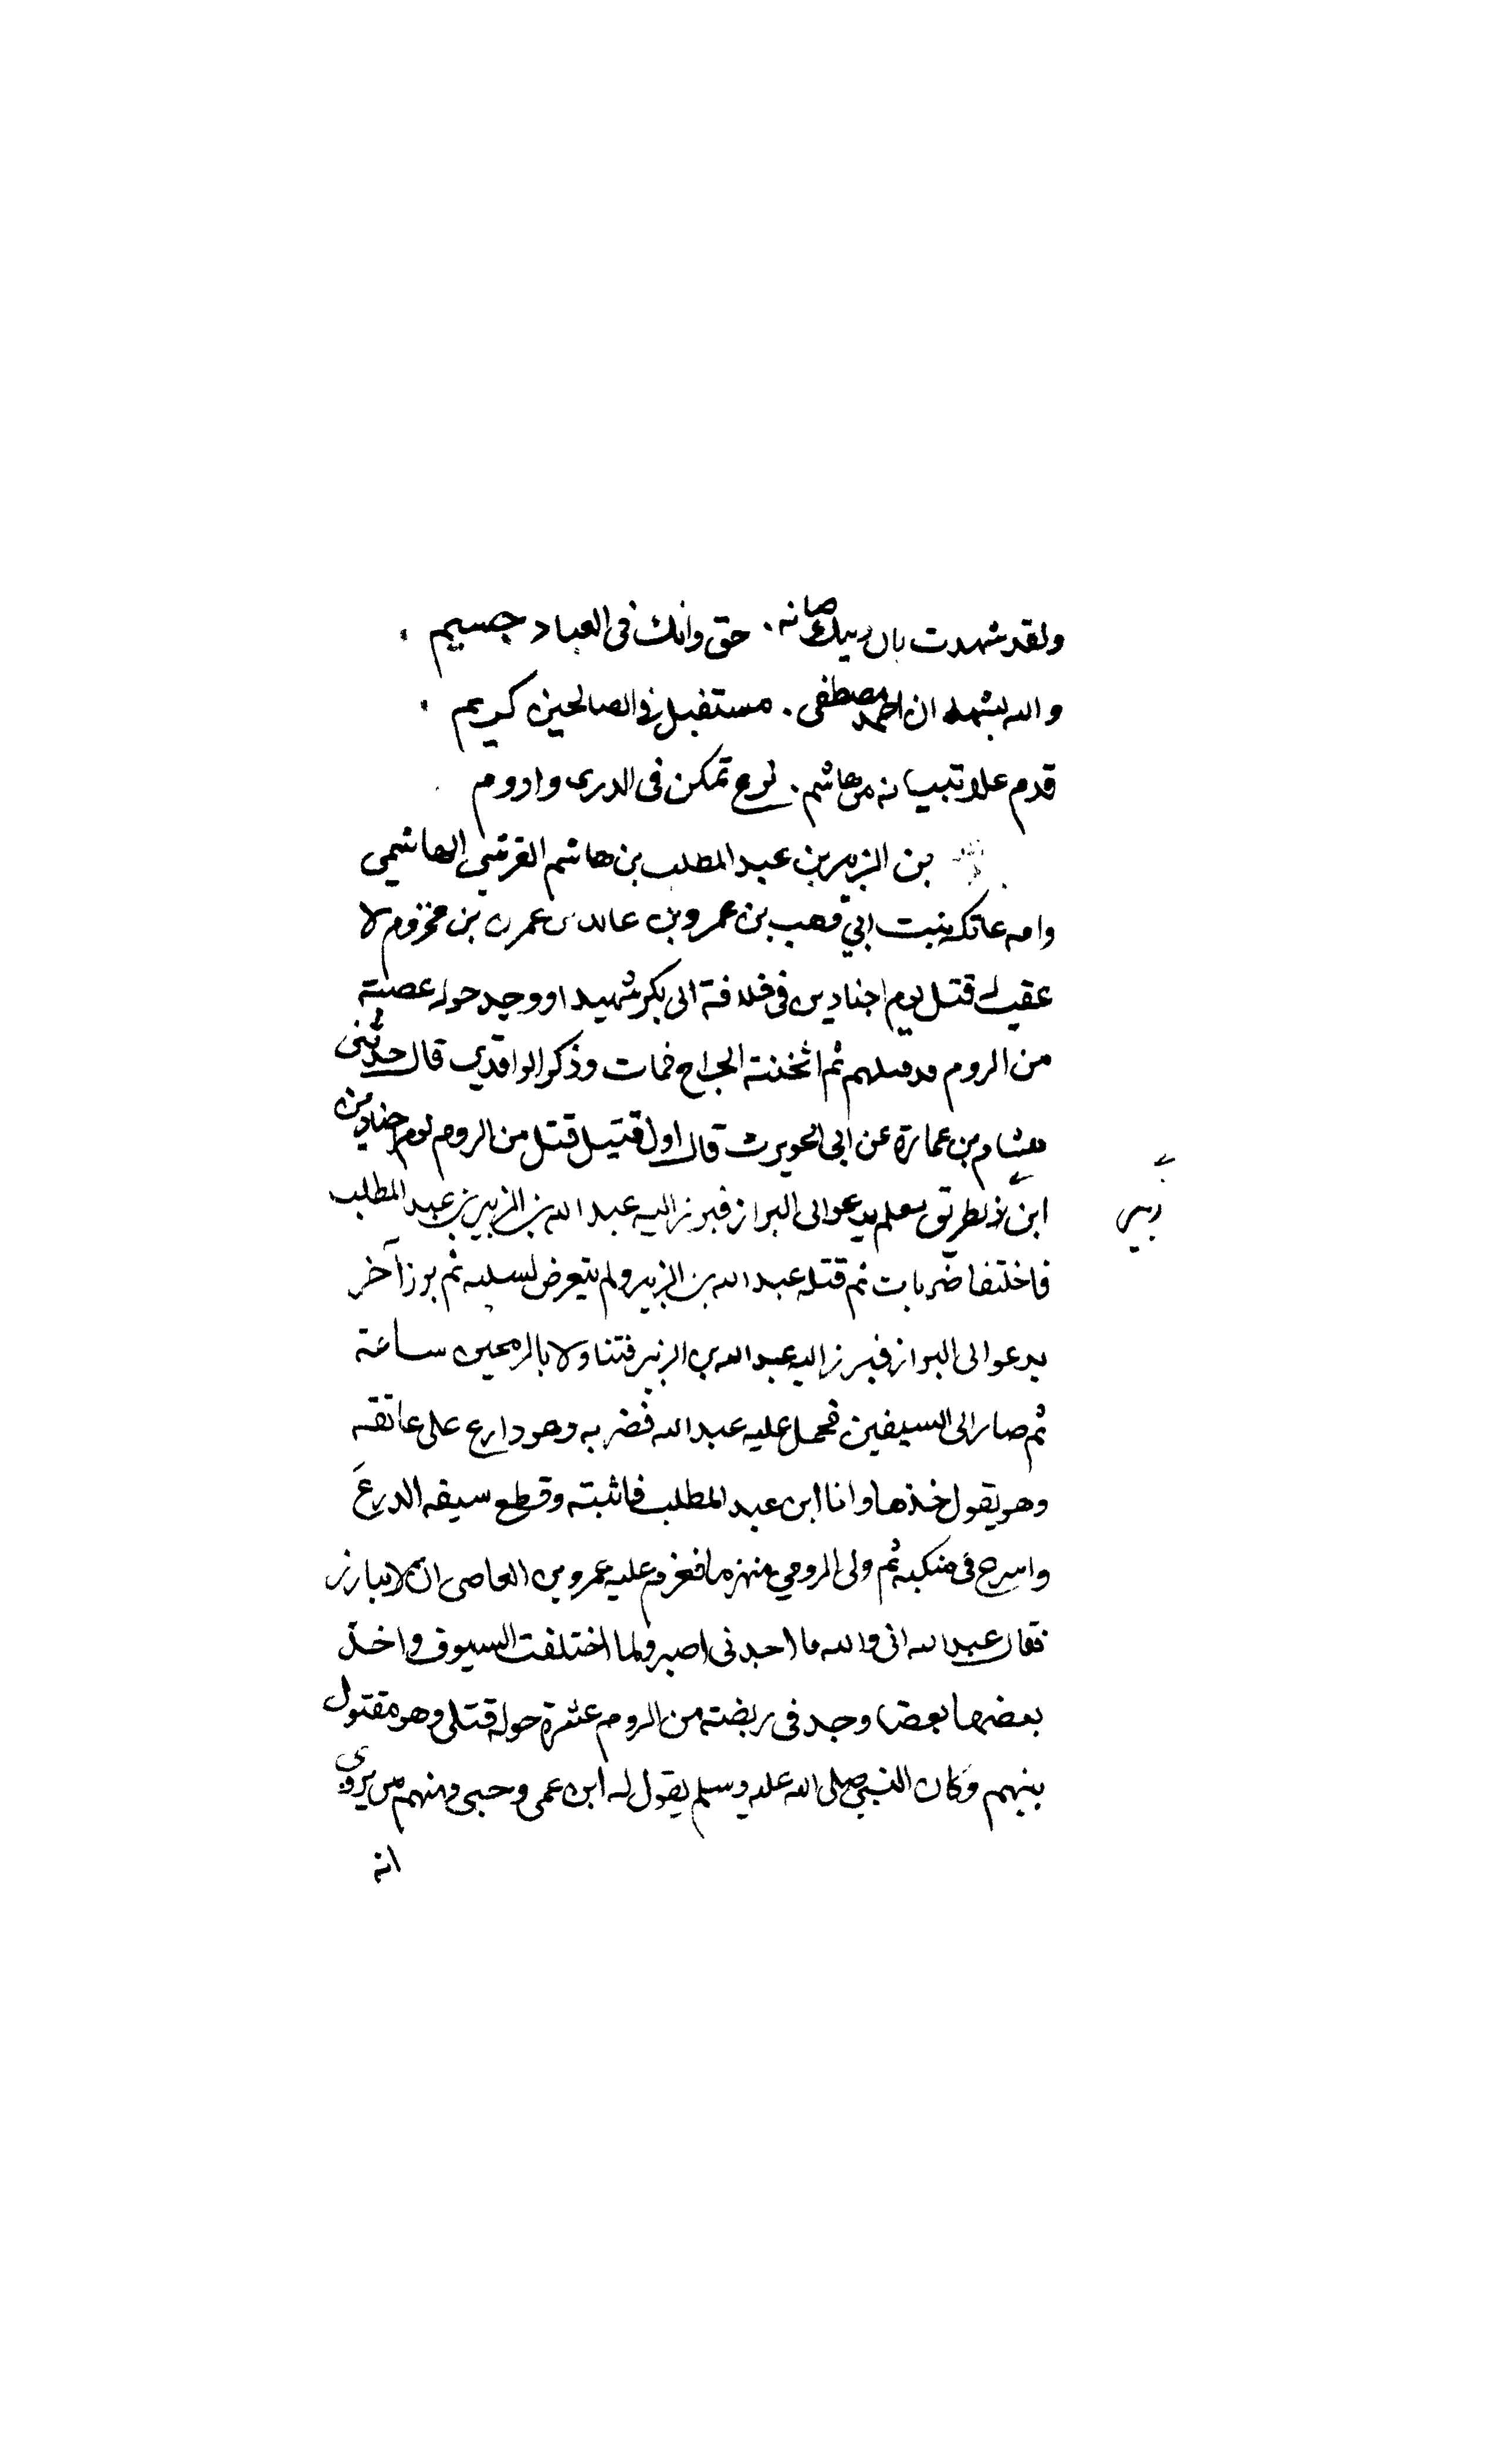 ولقد شهدت بان دينك صانه . حق وانك فى العباد جسيم .
والله يشهد ان احمد مصطفى . مستقبل فى الصالحين كريم .
قدم علا تبيانه من هاشم . فرع تمكن فى الدرى واروم
بن الزبير بن عبد المطلب بن هاشم القرشي الهاشمي
وامه عاتكه بنت ابي وهب بن عمرو بن عايد بن عمرن بن مخزوم لا
عقب له قتل يوم اجنادين فى خلافة ابى بكر شهيدا ووجد حوله عصبة
من الروم قد قتلهم ثم اثخنته الجراح فمات وذكر الواقدي قال حدثنى
هشام بن عمارة عن ابى الحويرث قال اول قتيل قتل من الروم يوم اجنادين
ابن بطريق معلم يدعو الى البراز فبرز اليه عبد الله بن الزبير بن عبد المطلب
فاختلفا ضربات ثم قتله عبد الله بن الزبير ولم يتعرض لسلبه ثم برز آخر
يدعو الى البراز فبرز اليه عبد الله بن الزبير فتناولا بالرمحين ساعة
ثم صارا الى السيفين فحمل عليه عبد الله فضربه وهو دارع على عاتقه
وهو يقول خذها وانا ابن عبد المطلب فاثبته وقطع سيفه الدرع
واسرع فى منكبه ثم ولى الرومي منهزما فعزم عليه عمرو بن العاصى ان لا يبارز
فقال عبد الله انى والله ما اجدنى اصبر ولما اختلفت السيوف واخذ
بعضها بعضا وجد فى ربضته من الروم عشرة حوله قتلى وهو مقتول
بينهم وكان النبي صلى الله عليه وسلم يقول له ابن عمى وحبى ومنهم من يروى
انه